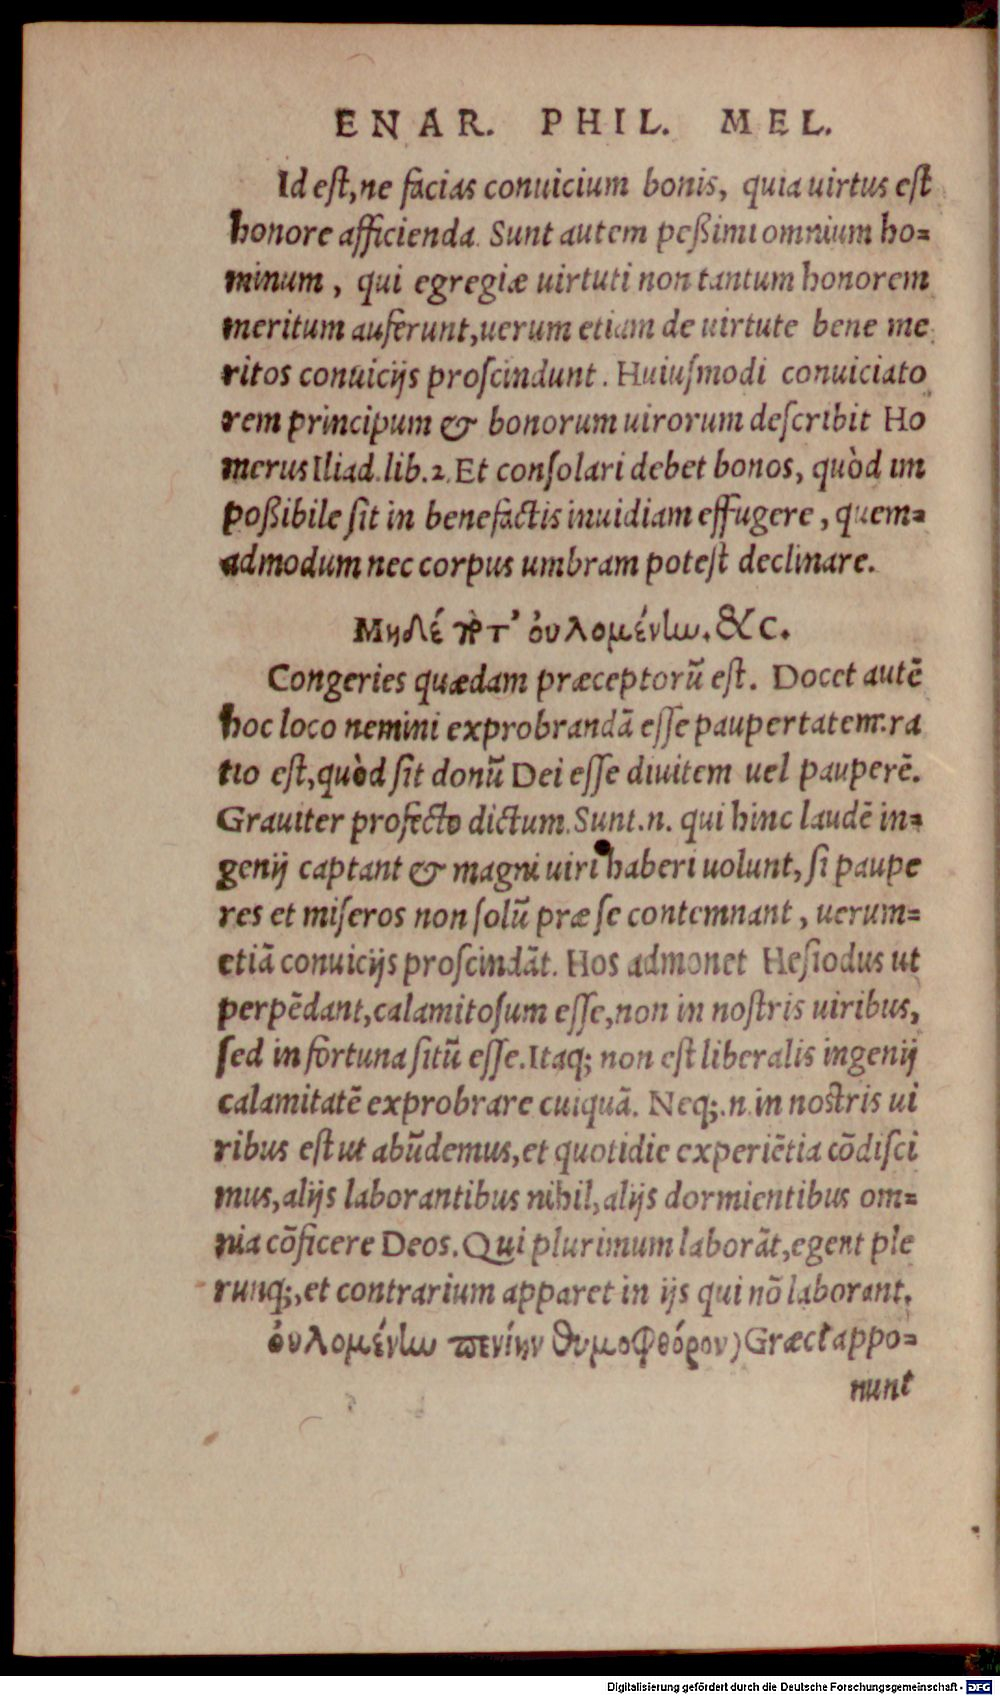 ENAR. PHIL. MEL.
Id est, ne facias conuicium bonis, quia uirtus est
honore afficienda. Sunt autem peßimi omnium ho=
minum, qui egregiæ uirtuti non tantum honorem
meritum auferunt, uerum etiam de uirtute bene me
ritos conuicijs proscindunt. Huiusmodi conuiciato
rem principum & bonorum uirorum describit Ho
merus Iliad. lib. 2. Et consolari debet bonos, quòd im
poßibile sit in benefactis inuidiam effugere, quem=
admodum nec corpus umbram potest declinare.
Μηδέ ποτ' ὀυλομένίω. &c.
Congeries quædam præceptorũ est. Docet autẽ
hoc loco nemini exprobrandã esse paupertatem: ra
tio est, quòd sit donũ Dei esse diuitem uel pauperẽ.
Grauiter profecto dictum. Sunt.n. qui hinc laudẽ in=
genij captant & magni uiri haberi uolunt, si paupe
res et miseros non solũ præ se contemnant, uerum=
etiã conuicijs proscindãt. Hos admonet Hesiodus ut
perpẽdant, calamitosum esse, non in nostris uiribus,
sed in fortuna sitũ esse. Itaq; non est liberalis ingenij
calamitatẽ exprobrare cuiquã. Neq;.n. in nostris ui
ribus est ut abũdemus, et quotidie experiẽtia cõdisci
mus, alijs laborantibus nihil, alijs dormientibus om=
nia cõficere Deos. Qui plurimum laborãt, egent ple
runq;, et contrarium apparet in ijs qui nõ laborant.
ὀυλομένίω πενίην θυμοφθόρον) Græci appo=
nunt
Digitalisierung gefördert durch die Deutsche Forschungsgemeinschaft - DFG